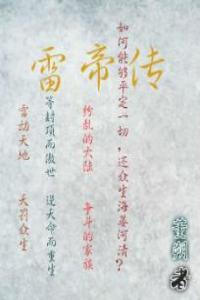 雷帝传
如何能够平定一切，还众生海晏河清？
纷乱的大陆 争斗的家族
等封顶而傲世 逆天命而重生
雷动天地 天罚众生
者